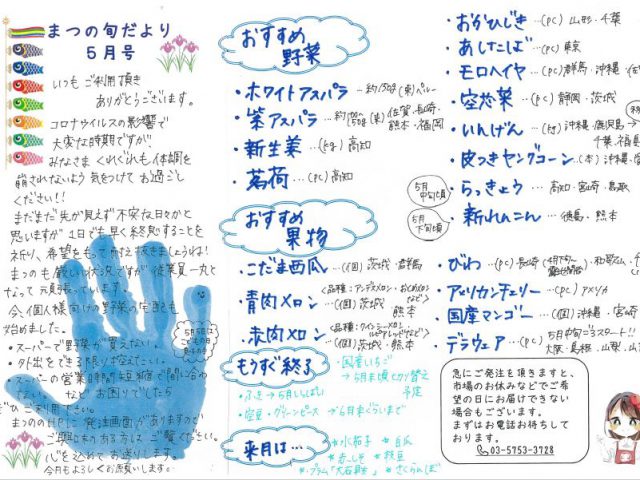 まつの旬だより
5月号
いつもご利用頂き
ありがとうございます。
コロナウイルスの影響で
大変な時期ですが
みなさまくれぐれも体調を
崩されないよう気をつけてお過ごし
ください!!
まだまだ先が見えず不安な日々かと
思いますが1日でも早く終息することを
祈り、希望をもって耐え抜きましょうね!
まつのも厳しい状況ですが従業員一丸と
なって頑張っています。
今、個人様向けの野菜の宅配も
始めました。
・スーパーで野菜が買えない
・外出をできる限りおさえたい。
・スーパーの営業時間短縮で間に合わ
ない などお困りでしたら
ご利用下さい。
まつのHPに発注画面がありますので
ご興味のある方はご覧ください。
心を込めてお送りします。
今月もよろしくお願いします。
5月5日は
こどもの日
おすすめ
野菜
・ホワイトアスパラ …約150g(束)ペルー
・紫アスパラ …(束)佐賀・長崎・
熊本・福岡
・新生姜 …(kg)高知
・茗荷 …(pc)高知
おすすめ
果物
・こだま西瓜 …(個)茨城・群馬
・青肉メロン (品種:アンデスメロン・おとめメロン
など)
…(個)茨城・熊本
・赤肉メロン (品種:クインシーメロン
など)
…(個)茨城・熊本
もうすぐ終了
国産いちご
→5月末頃切り替え
予定
・ふき→5月いっぱい
・空豆・グリーンピース→6月中ぐらいまで
来月は…
*水茄子 *白瓜
*赤しそ *枝豆
*プラム「大石早生」 *さくらんぼ
・おかひじき …(pc)山形・千葉
・あしたば …(pc)東京
・モロヘイヤ …(pc)群馬・沖縄
・空芯菜 …(pc)静岡・茨城
・いんげん …(kg)沖縄・鹿児島
千葉・福島
・皮つきヤングコーン …(本)沖縄・宮
5月
中旬頃
・らっきょう …高知・宮崎・鳥取
5月
下旬頃
・新れんこん …徳島・熊本
・びわ …(pc)長崎・和歌山
・アメリカンチェリー …(pc)アメリカ
・国産マンゴー …(個)沖縄・宮崎
・デラウェア …5月中旬ごろスタート!
大阪・島根・山梨・山
急にご発注を頂きますと、
市場のお休みなどでご希
望の日にお届けできない
場合もございます。
まずはお電話お待ちして
おります。
☎03-5753-3728